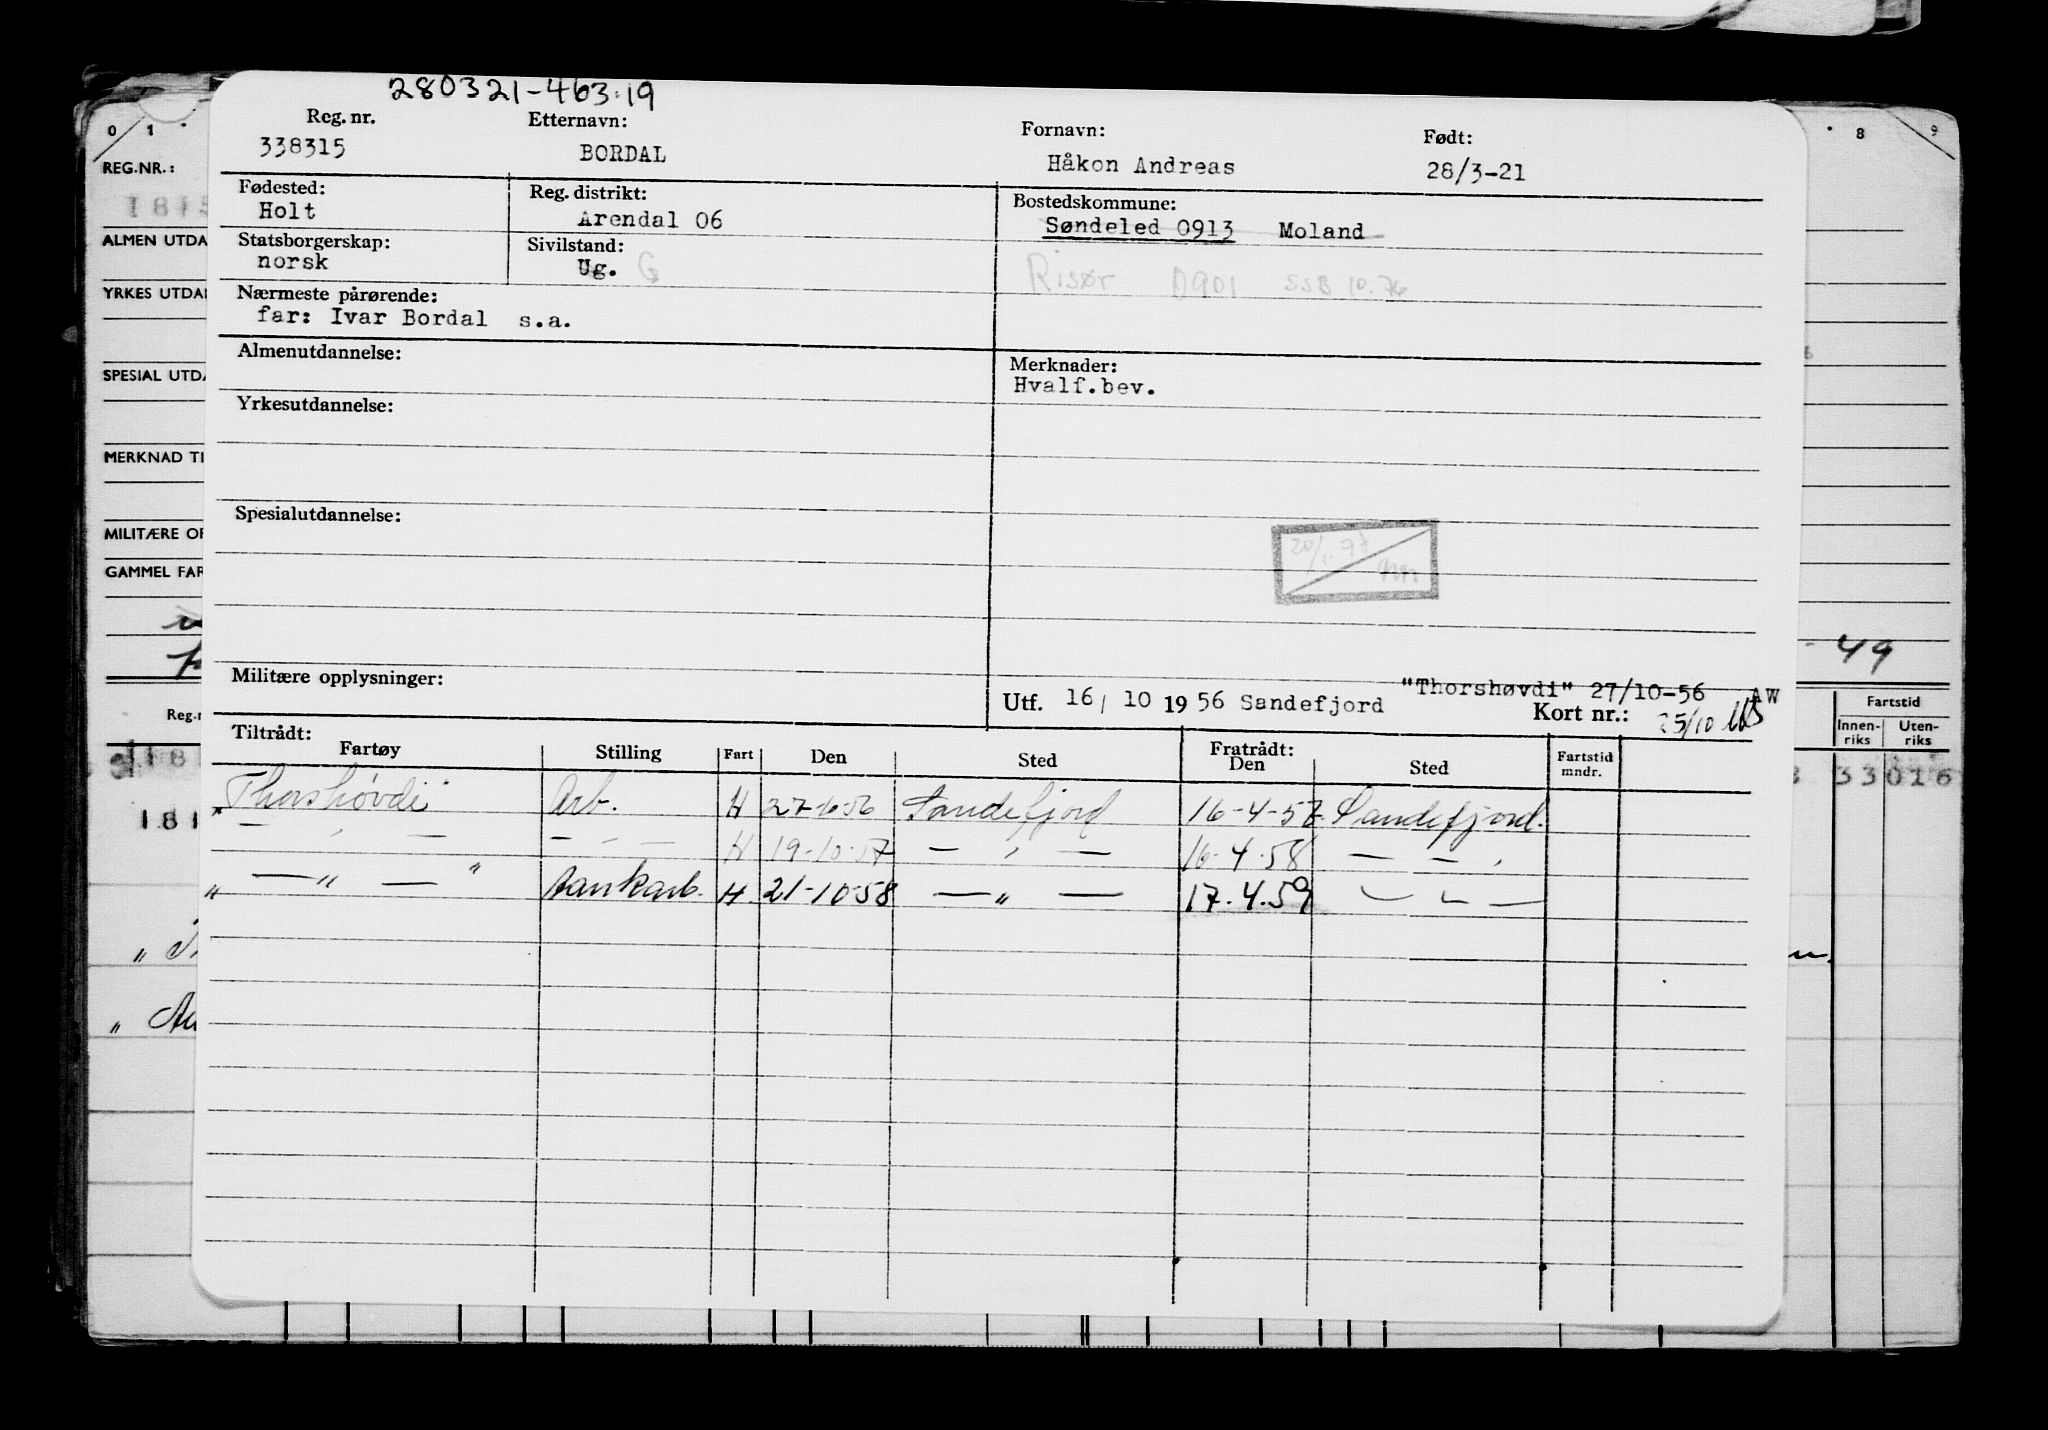 280321-463.19
Reg. nr. Etternavn: Fornavn: Født:
338315 BORDAL Håkon Andreas 28/3-21
Fødested: Reg. distrikt: Bostedskommune:
Holt Arendal 06 Søndeled 0913 Moland
Statsborgerskap: Sivilstand:
norsk Ug. G Risør 0901 SSB 10.76
Nærmeste pårørende:
far: Ivar Bordal s.a.
Almenutdannelse: Merknader:
Hvalf.bev.
Yrkesutdannelse:
Spesialutdannelse:
20/1.77
Militære opplysninger: "Thorshøvdi" 27/10-56 AW
Utf. 16/ 10 1956 Sandefjord Kort nr.: 25/10
Tiltrådt: Fratrådt:
Fartøy Stilling Fart Den Sted Den Sted Fartstid mndr.
"Thorshövdi" Arb. H 27-10-56 Sandefjord 16-4-57 Sandefjord.
— " — — " — H 19-10-57 — " — 16-4-58 — " —
" — " — " H 21-10-58 — " — 17.4.59 — " —
0 1 8 9
REG.NR.:
ALMEN UTDA
YRKES UTDA
SPESIAL UTDA
MERKNAD TI
MILITÆRE OP
GAMMEL FAR
49
Reg.n
Fartstid
Innen-riks Uten-riks
33016
181